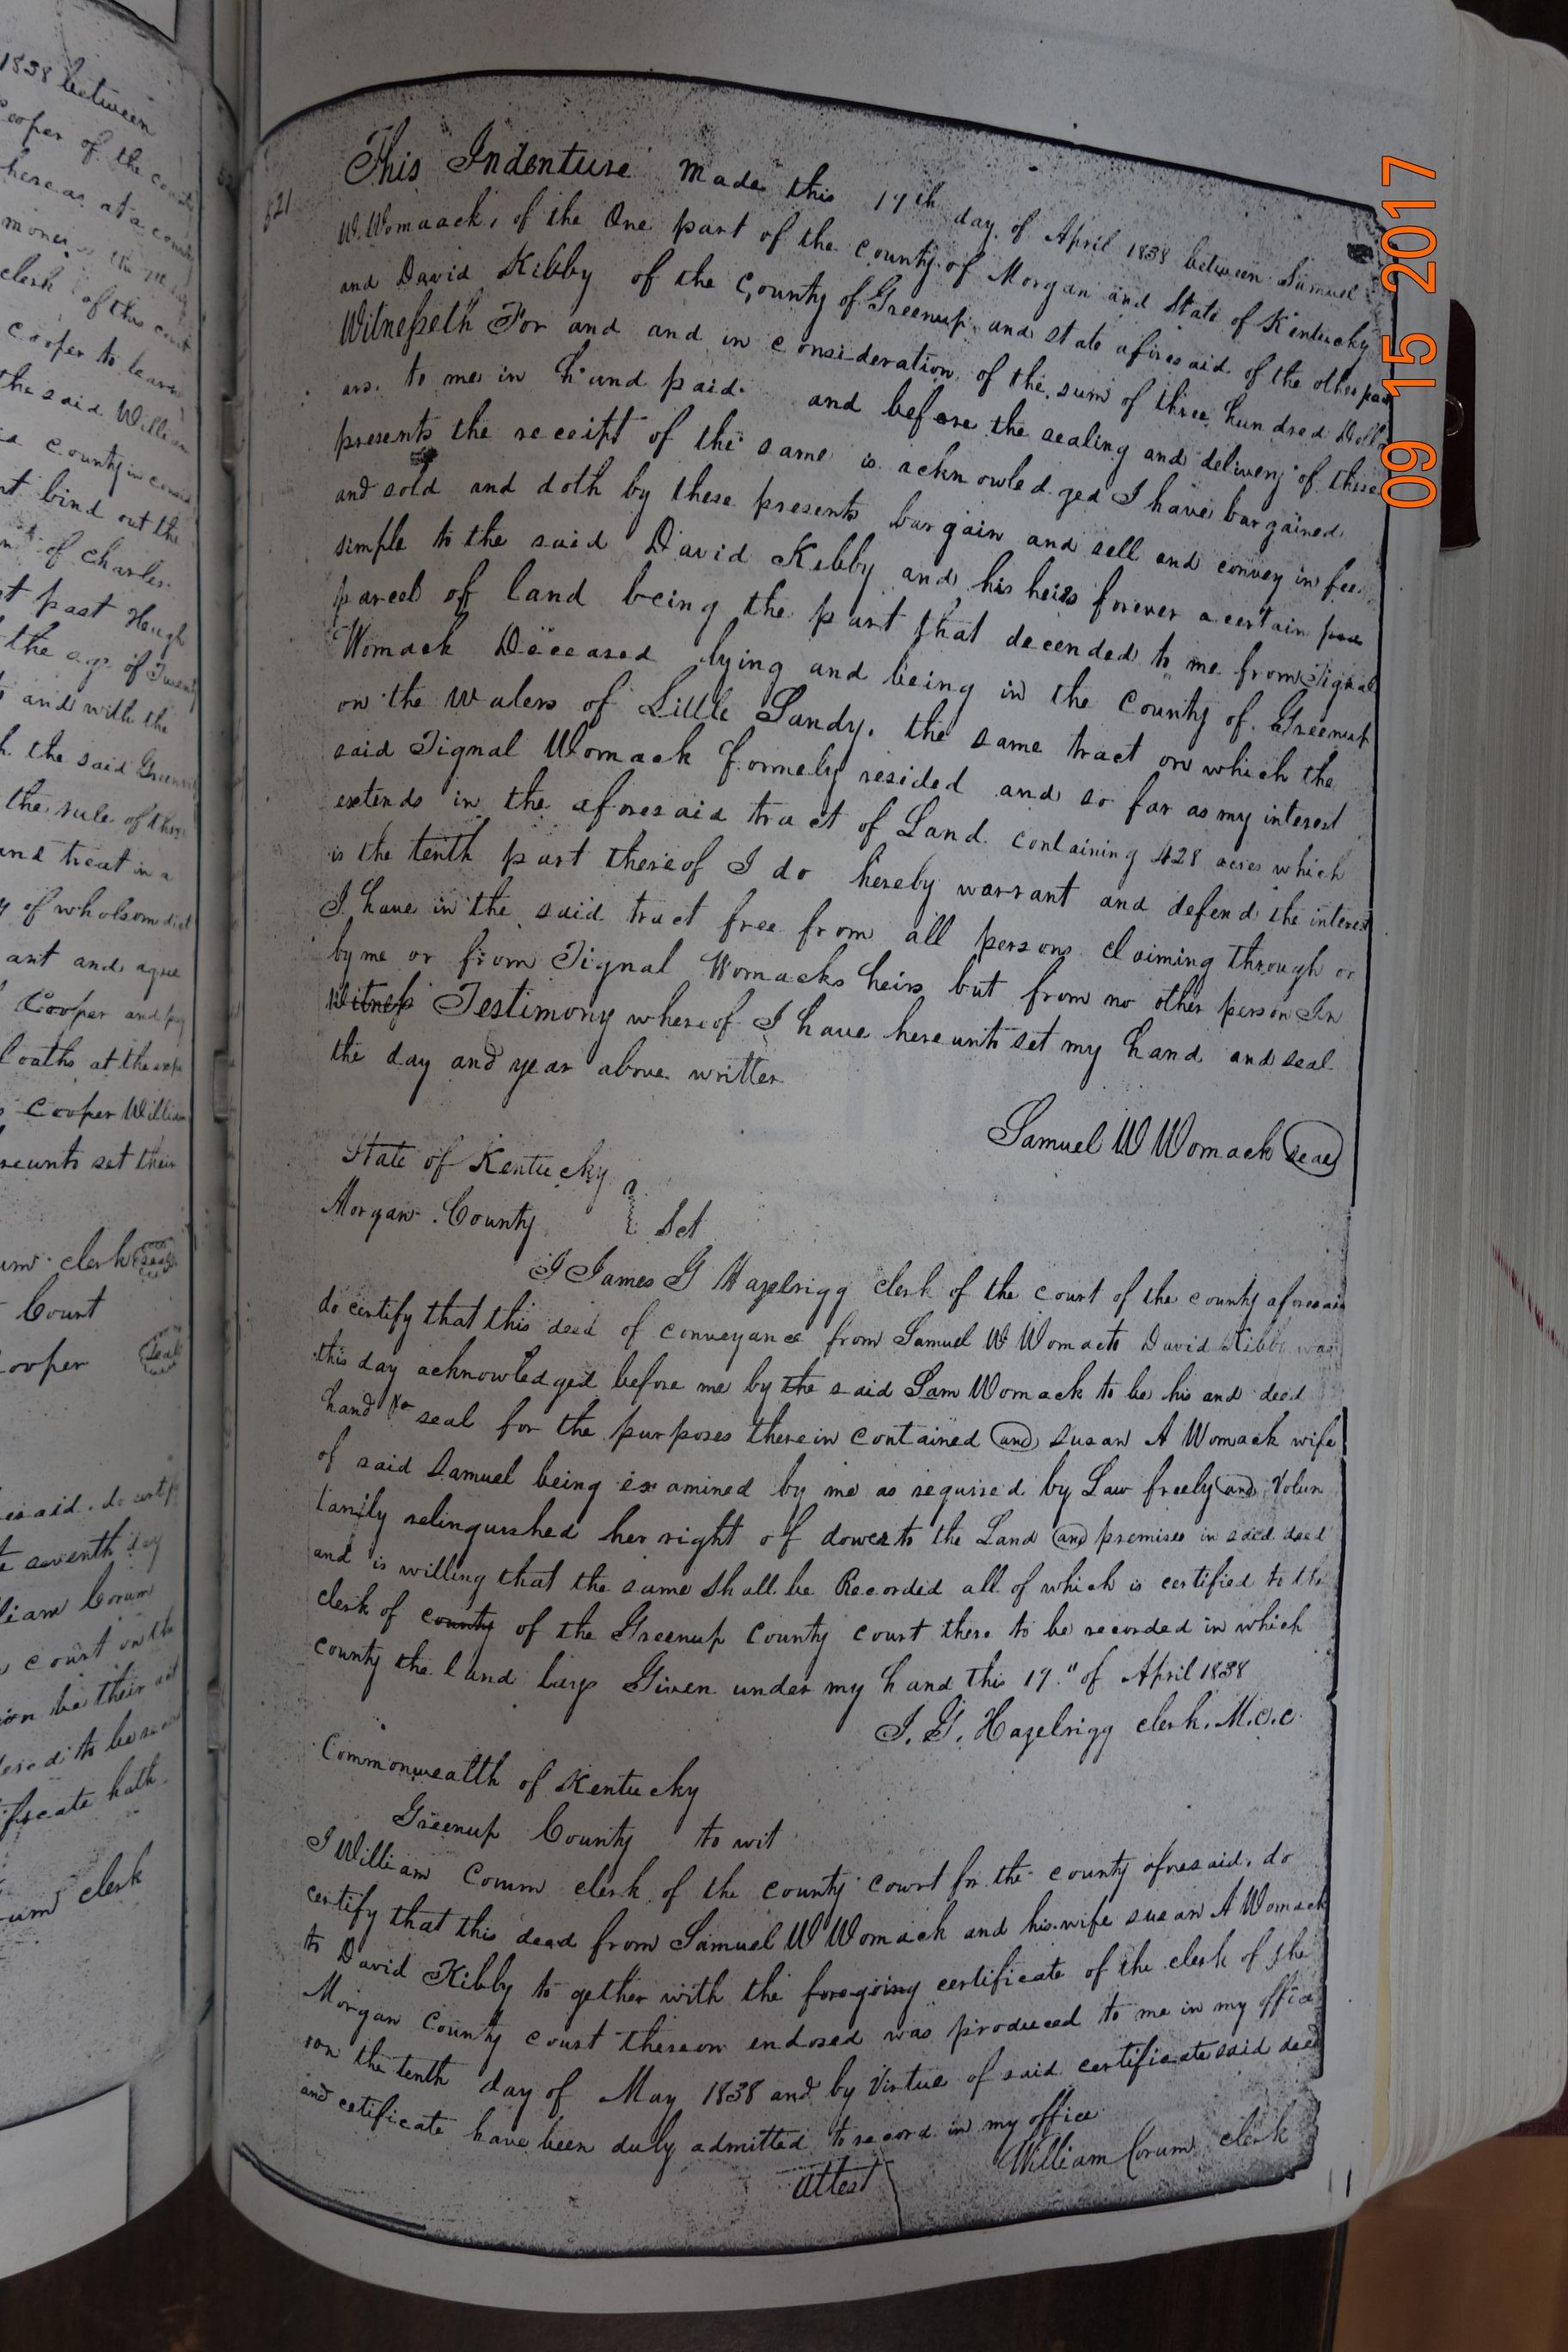 1838 between
Cooper of the county
whereas at a county
clerk of this court
Cooper to learn
the said William
county in
bind out the
of Charles
past Hough
the age of Twenty
and with the
the said
the rule of
and treat in a
of wholsom diet
ant and agree
Cooper and pay
Cloaths at the
Cooper William
hereunto set their
clerk seal
Court
Cooper seal
seventh day
William Corum
court on the
be their act
to be
ificate hath
clerk
521
This Indenture made this 17th day of April 1838 between Samuel
W. Womaack, of the One part of the county of Morgan and State of Kentucky
and David Kibby of the County of Greenup and state afiresaid of the other part
Witnesseth For and and in consideration of the sum of three hundred Doll
ars. to me in hand paid. and before the sealing and delivery of these
presents the receipt of the same is acknowledged I have bargained
and sold and doth by these presents bargain and sell and convey in fee
simple to the said David Kibby and his heirs forever a certain
parcel of land being the part that decended to me from Tignal
Womack Deceased lying and being in the County of Greenup
on the waters of Little Sandy. the same tract on which the
said Tignal Womack formely resided and so far as my interest
extends in the aforesaid tract of Land containing 428 acres which
is the tenth part thereof I do hereby warrant and defend the interest
I have in the said tract free from all persons claiming through or
by me or from Tignal Womacks heirs but from no other person In
Witness Testimony whereof I have hereunto set my hand and seal
the day and year above written
Samuel W Womack seal
State of Kentucky
Morgan County } Sct
I James G Hazelrigg clerk of the court of the county aforesaid
do certify that this deed of conveyance from Samuel W Womack to David Kibby was
this day acknowledged before me by the said Sam Womack to be his and deed
hand & seal for the purposes therein contained and Susan A Womack wife
of said Samuel being examined by me as required by Law freely and Volun
tarily relinquished her right of dower to the Land and premises in said deed
and is willing that the same shall be Recorded all of which is certified to the
clerk of county of the Greenup County court there to be recorded in which
county the land lays Given under my hand this 17" of April 1838
J. G. Hazelrigg clerk. M.C.C
Commonwealth of Kentucky
Greenup County to wit
I William Corum clerk of the county court for the county aforesaid. do
certify that this dead from Samuel W Womack and his wife susan A Womack
to David Kibby to gether with the foregoing certificate of the clerk of the
Morgan County court thereon endosed was produced to me in my office
on the tenth day of May 1838 and by Virtue of said certificate said deed
and cetificate have been duly admitted to record in my office
Attest William Corum clerk
09 15 2017